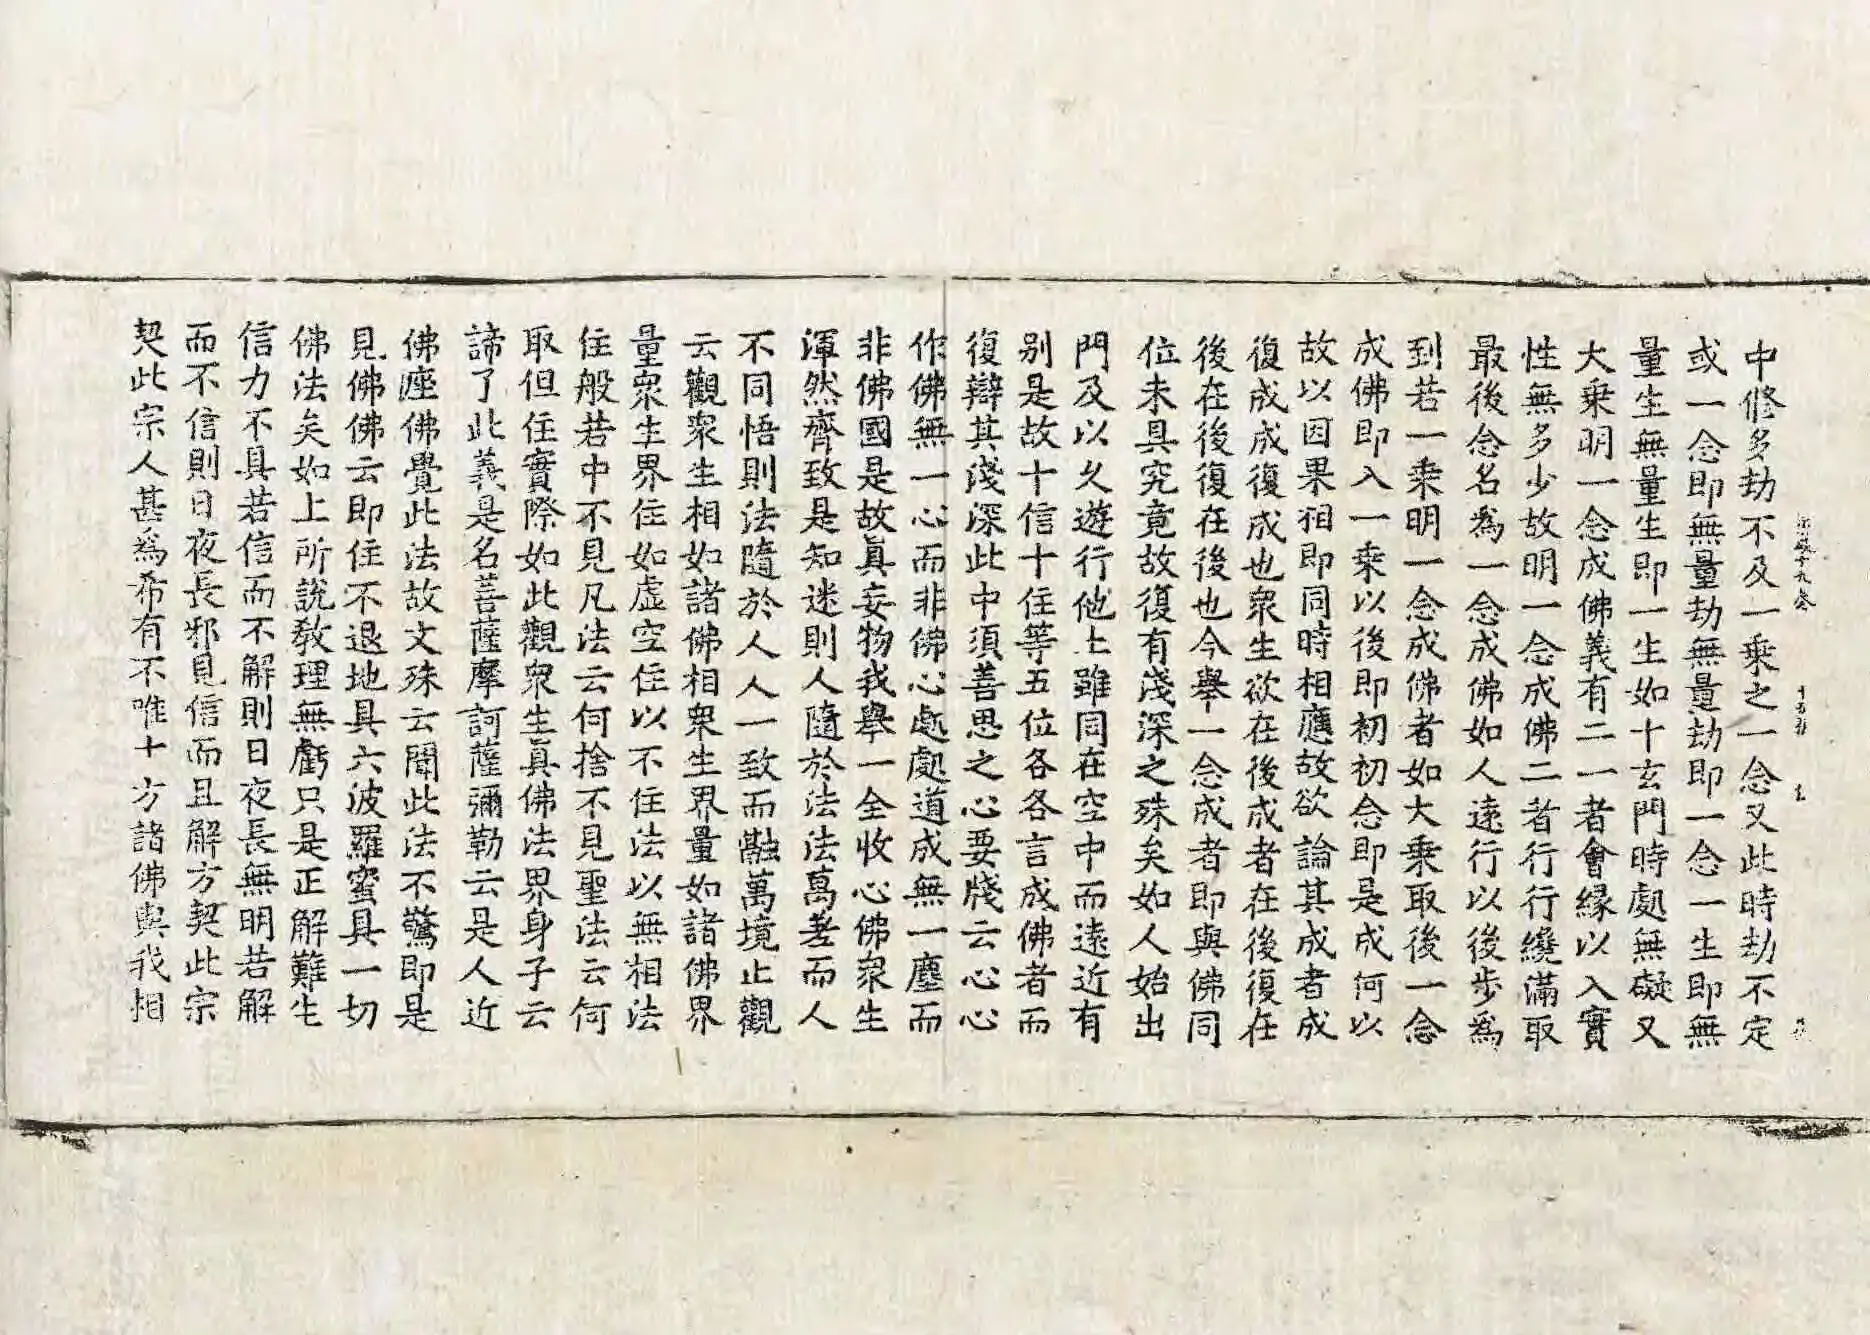 中修多劫不及一乘之一念又此時劫不定
或一念即無量劫無量劫即一念一生即無
量生無量生即一生如十玄門時處無礙又
大乘明一念成佛義有二一者會緣以入實
性無多少故明一念成佛二者行行繞滿取
最後念名為一念成佛如人遠行以後步為
到若一乘明一念成佛者如大乘取後一念
成佛即入一乘以後即初初念即是成何以
故以因果相即同時相應故欲論其成者成
復成成復成也衆生欲在後成者在後復在
後在後復在後也今舉一念成者即與佛同
位未具究竟故復有淺深之殊矣如人始出
門及以久遊行他土雖同在空中而遠近有
別是故十信十住等五位各各言成佛者而
復辯其淺深此中須善思之心要牋云心心
作佛無一心而非佛心處處道成無一塵而
非佛國是故眞妄物我舉一全收心佛衆生
渾然齊致是知迷則人隨於法法萬差而人
不同悟則法隨於人人一致而融萬境止觀
云觀衆生相如諸佛相衆生界量如諸佛界
量衆生界住如虛空住以不住法以無相法
住般若中不見凡法云何捨不見聖法云何
取但住實際如此觀衆生眞佛法界身子云
諦了此義是名菩薩摩訶薩彌勒云是人近
佛座佛覺此法故文殊云聞此法不驚即是
見佛佛云即住不退地具六波羅蜜具一切
佛法矣如上所說教理無虧只是正解難生
信力不具若信而不解則日夜長無明若解
而不信則日夜長邪見信而且解方契此宗
契此宗人甚為希有不唯十方諸佛與我相